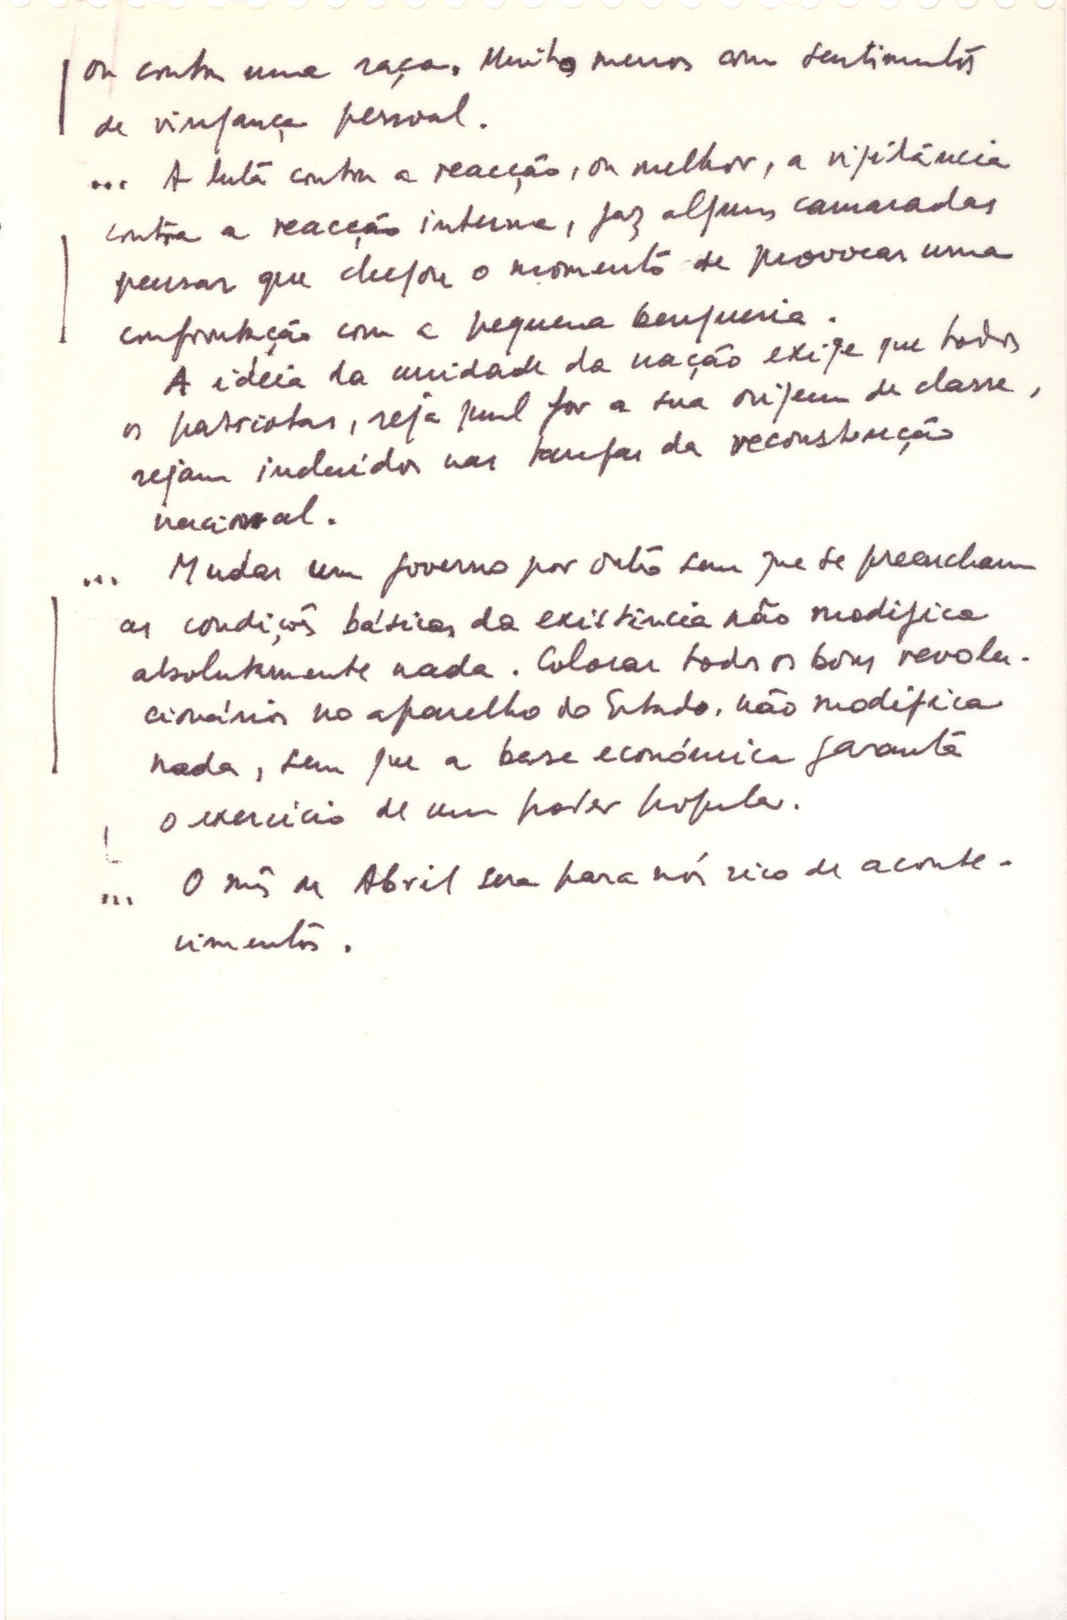 ou contra uma raça. Muito menos com sentimentos
de vingança pessoal.
... A luta contra a reacção, ou melhor, a vigilância
contra a reacção interna, faz alguns camaradas
pensar que chegou o momento de provocar uma
confrontação com a pequena burguesia.
A ideia da unidade da nação exige que todos
os patriotas, seja qual for a sua origem de classe,
sejam incluídos nas tarefas da reconstrução
nacional.
... Mudar um governo por outro sem que se preencham
as condições básicas da existência não modifica
absolutamente nada. Colocar todos os bons revolu-
cionários no aparelho do Estado, não modifica
nada, sem que a base económica garanta
o exercício de um poder popular.
... O mês de Abril sera para nós rico de aconte-
cimentos.